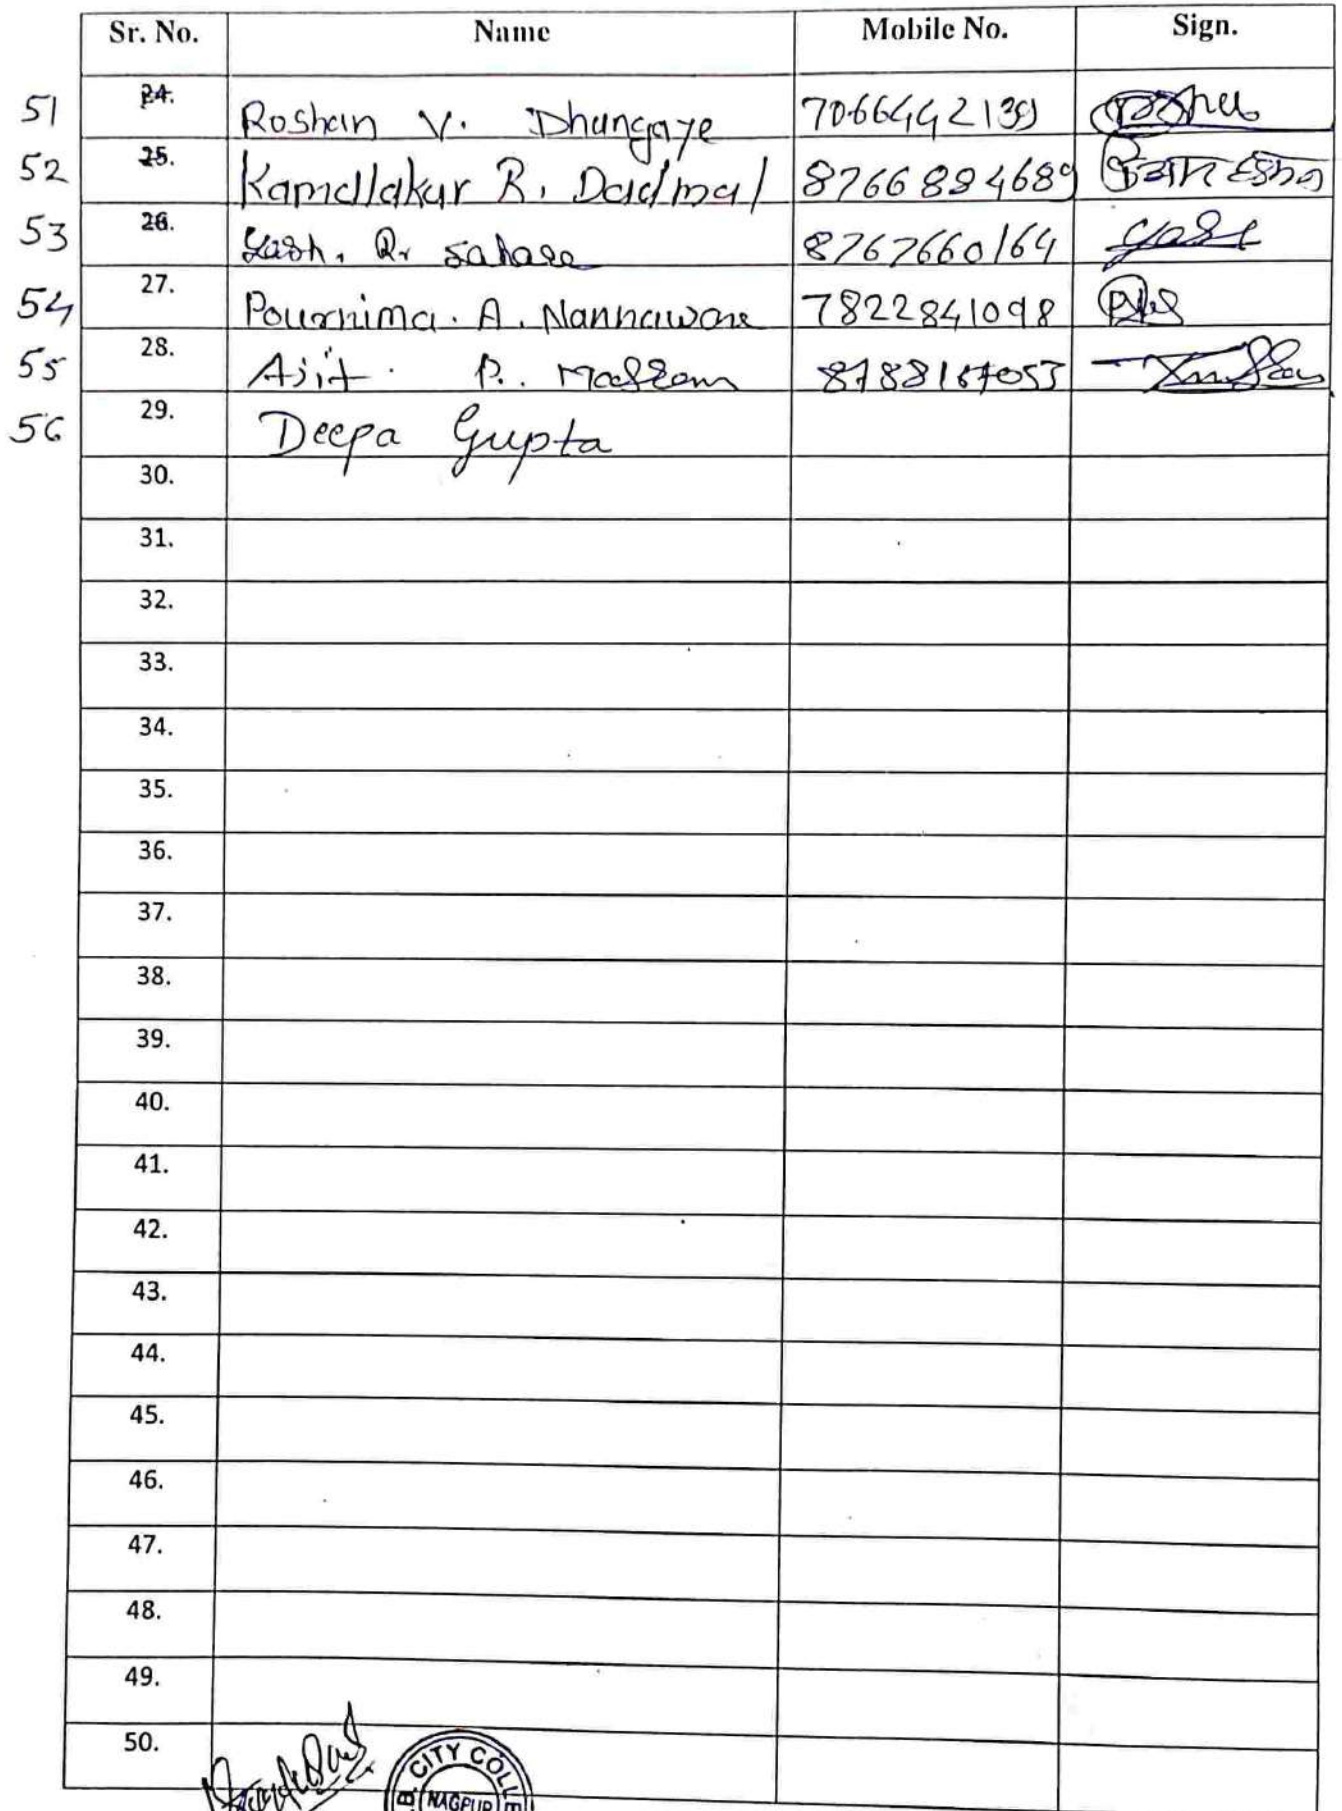 Sr. No. Name Mobile No. Sign.
51 24. Roshan V. Dhangaye 7066442139
52 25. Kamallakar R. Dadmal 8766884689
53 26. Yash. R. Sahare 8767660164 Yash
54 27. Pournima. A. Nannaware 7822841098
55 28. Ajit. P. Madram
56 29. Deepa Gupta
30.
31.
32.
33.
34.
35.
36.
37.
38.
39.
40.
41.
42.
43.
44.
45.
46.
47.
48.
49.
50.
CITY COLL
NAGPUR